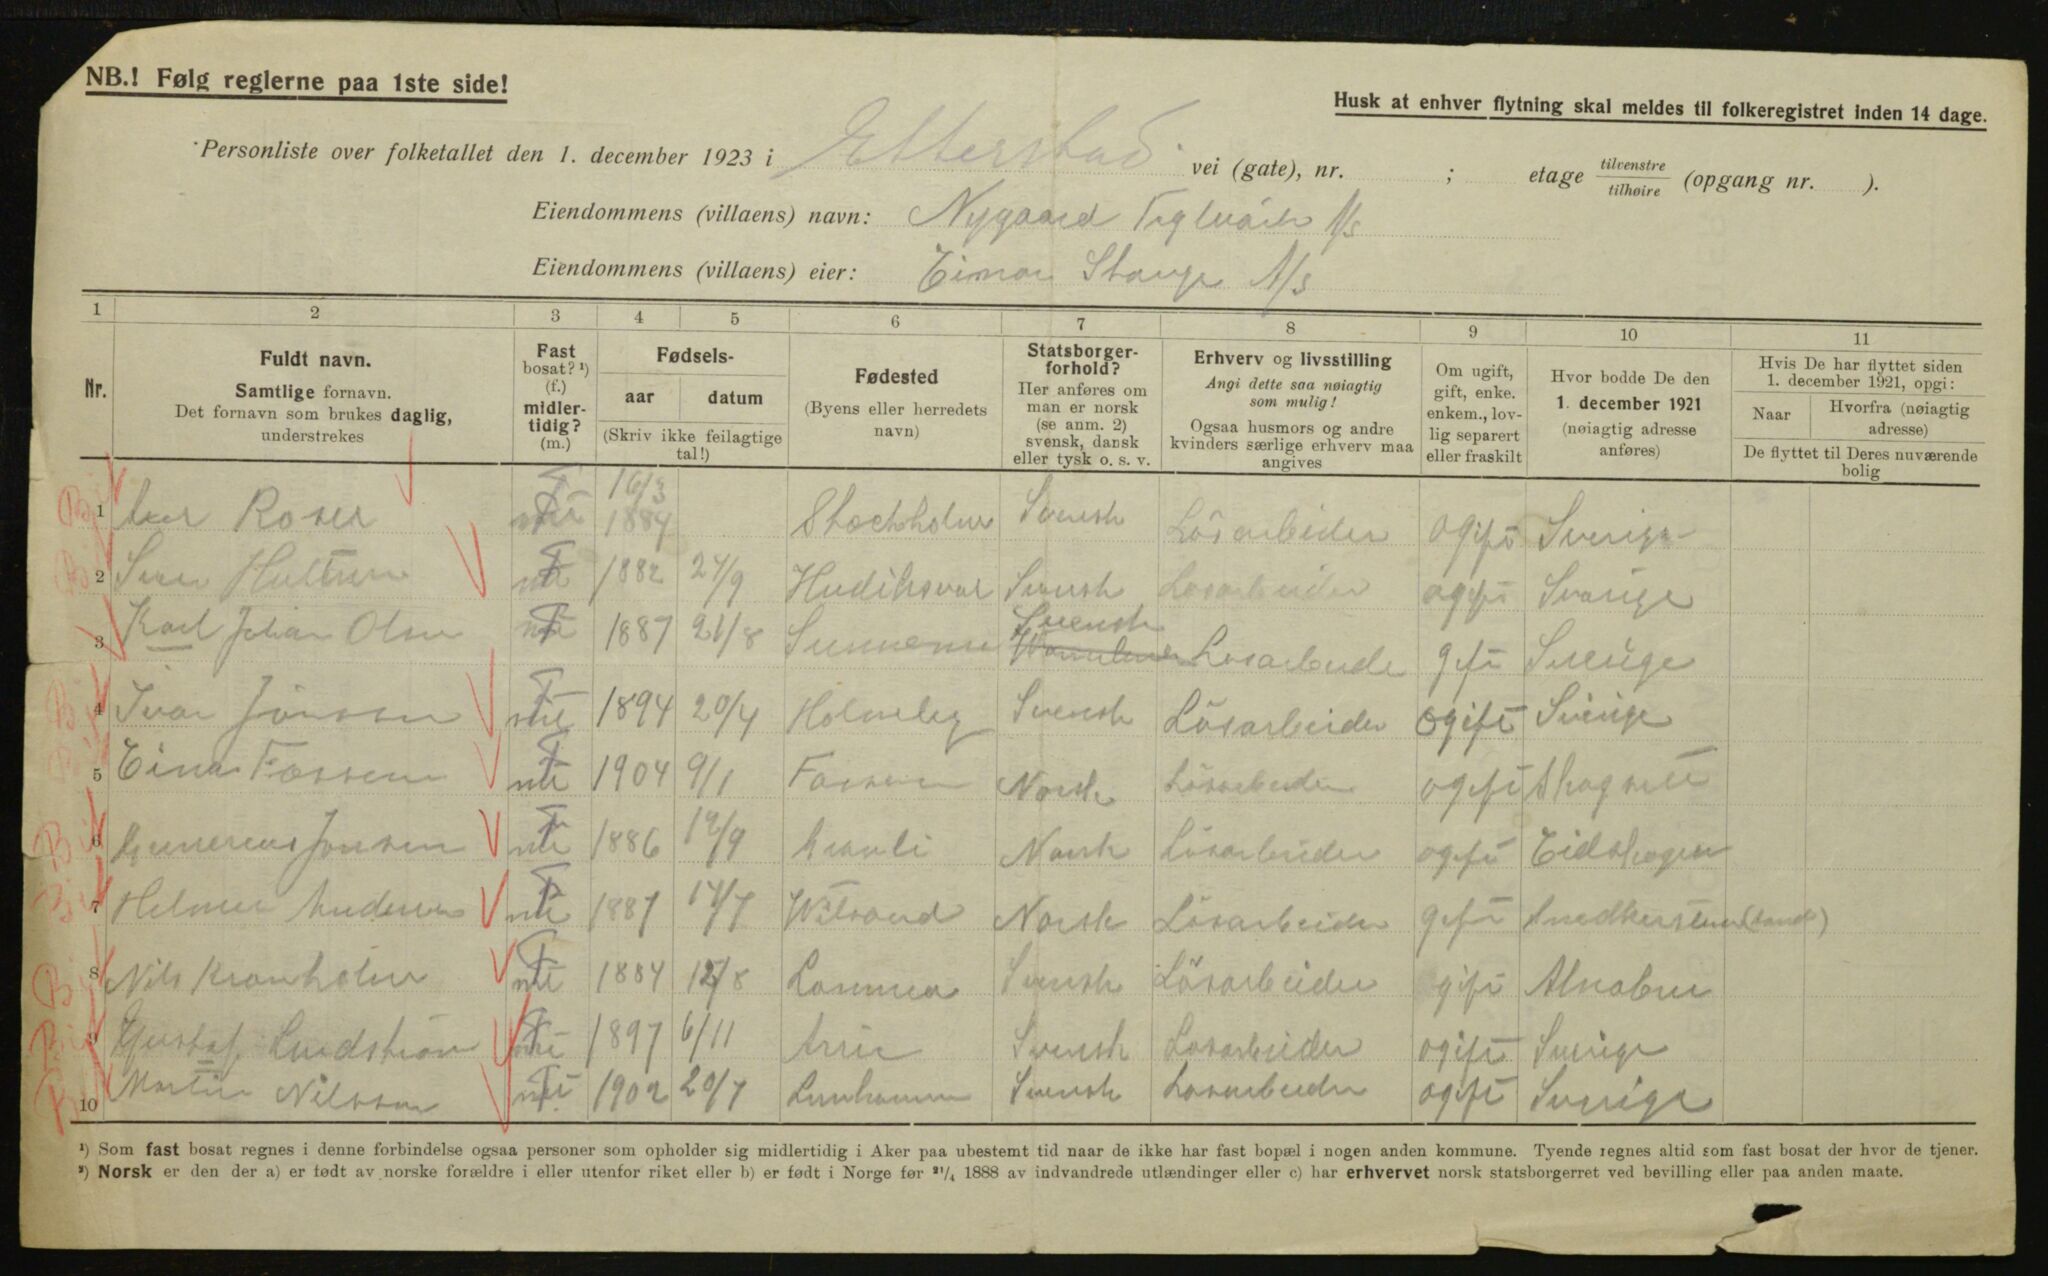 NB.! Følg reglerne paa 1ste side!
Husk at enhver flytning skal meldes til folkeregistret inden 14 dage.
Personliste over folketallet den 1. december 1923 i Etterstad vei (gate), nr. ; etage tilvenstre tilhøire (opgang nr. ).
Eiendommens (villaens) navn: Nygaard Teglværk A/s
Eiendommens (villaens) eier: Einar Stange A/s
1 2 3 4 5 6 7 8 9 10 11
Nr.
Fuldt navn.
Samtlige fornavn.
Det fornavn som brukes daglig,
understrekes
Fast
bosat? ¹)
(f.)
midler-
tidig?
(m.)
Fødsels-
aar datum
(Skriv ikke feilagtige
tal!)
Fødested
(Byens eller herredets
navn)
Statsborger-
forhold?
Her anføres om
man er norsk
(se anm. 2)
svensk, dansk
eller tysk o. s. v.
Erhverv og livsstilling
Angi dette saa nøiagtig
som mulig!
Ogsaa husmors og andre
kvinders særlige erhverv maa
angives
Om ugift,
gift, enke.
enkem., lov-
lig separert
eller fraskilt
Hvor bodde De den
1. december 1921
(nøiagtig adresse
anføres)
Hvis De har flyttet siden
1. december 1921, opgi:
Naar Hvorfra (nøiagtig
adresse)
De flyttet til Deres nuværende
bolig
1 Roser F 16/3 1884 Stockholm Svensk Lösarbeider ogift Sverige
2 Hultren F 1882 24/9 Hudiksval Svensk Losarbeider ogift Sverige
3 Karl Johan Olsen F 1887 21/8 Sunnemo Svensk Losarbeider gift Sverige
4 Ivar Jönsson F 1894 20/4 Svensk Lösarbeider ogift Sverige
5 Einar Fossen F 1904 9/1 Fossen Norsk Lösarbeider ogift
6 Jonsen F 1886 19/9 Norsk Lösarbeider ogift Eidskogen
7 Helmer Andersen F 1887 14/7 Norsk Lösarbeider gift
8 Nils Kronholm F 1884 8 Svensk Lösarbeider gift Alnabru
9 Gustaf Lindström F 1897 6/11 Arrie Svensk Losarbeider ogift Sverige
10 Martin Nilsson F 1902 20/7 Limhamn Svensk Losarbeider ogift Sverige
¹) Som fast bosat regnes i denne forbindelse ogsaa personer som opholder sig midlertidig i Aker paa ubestemt tid naar de ikke har fast bopæl i nogen anden kommune. Tyende regnes altid som fast bosat der hvor de tjener.
²) Norsk er den der a) er født av norske forældre i eller utenfor riket eller b) er født i Norge før ²¹/₄ 1888 av indvandrede utlændinger eller c) har erhvervet norsk statsborgerret ved bevilling eller paa anden maate.